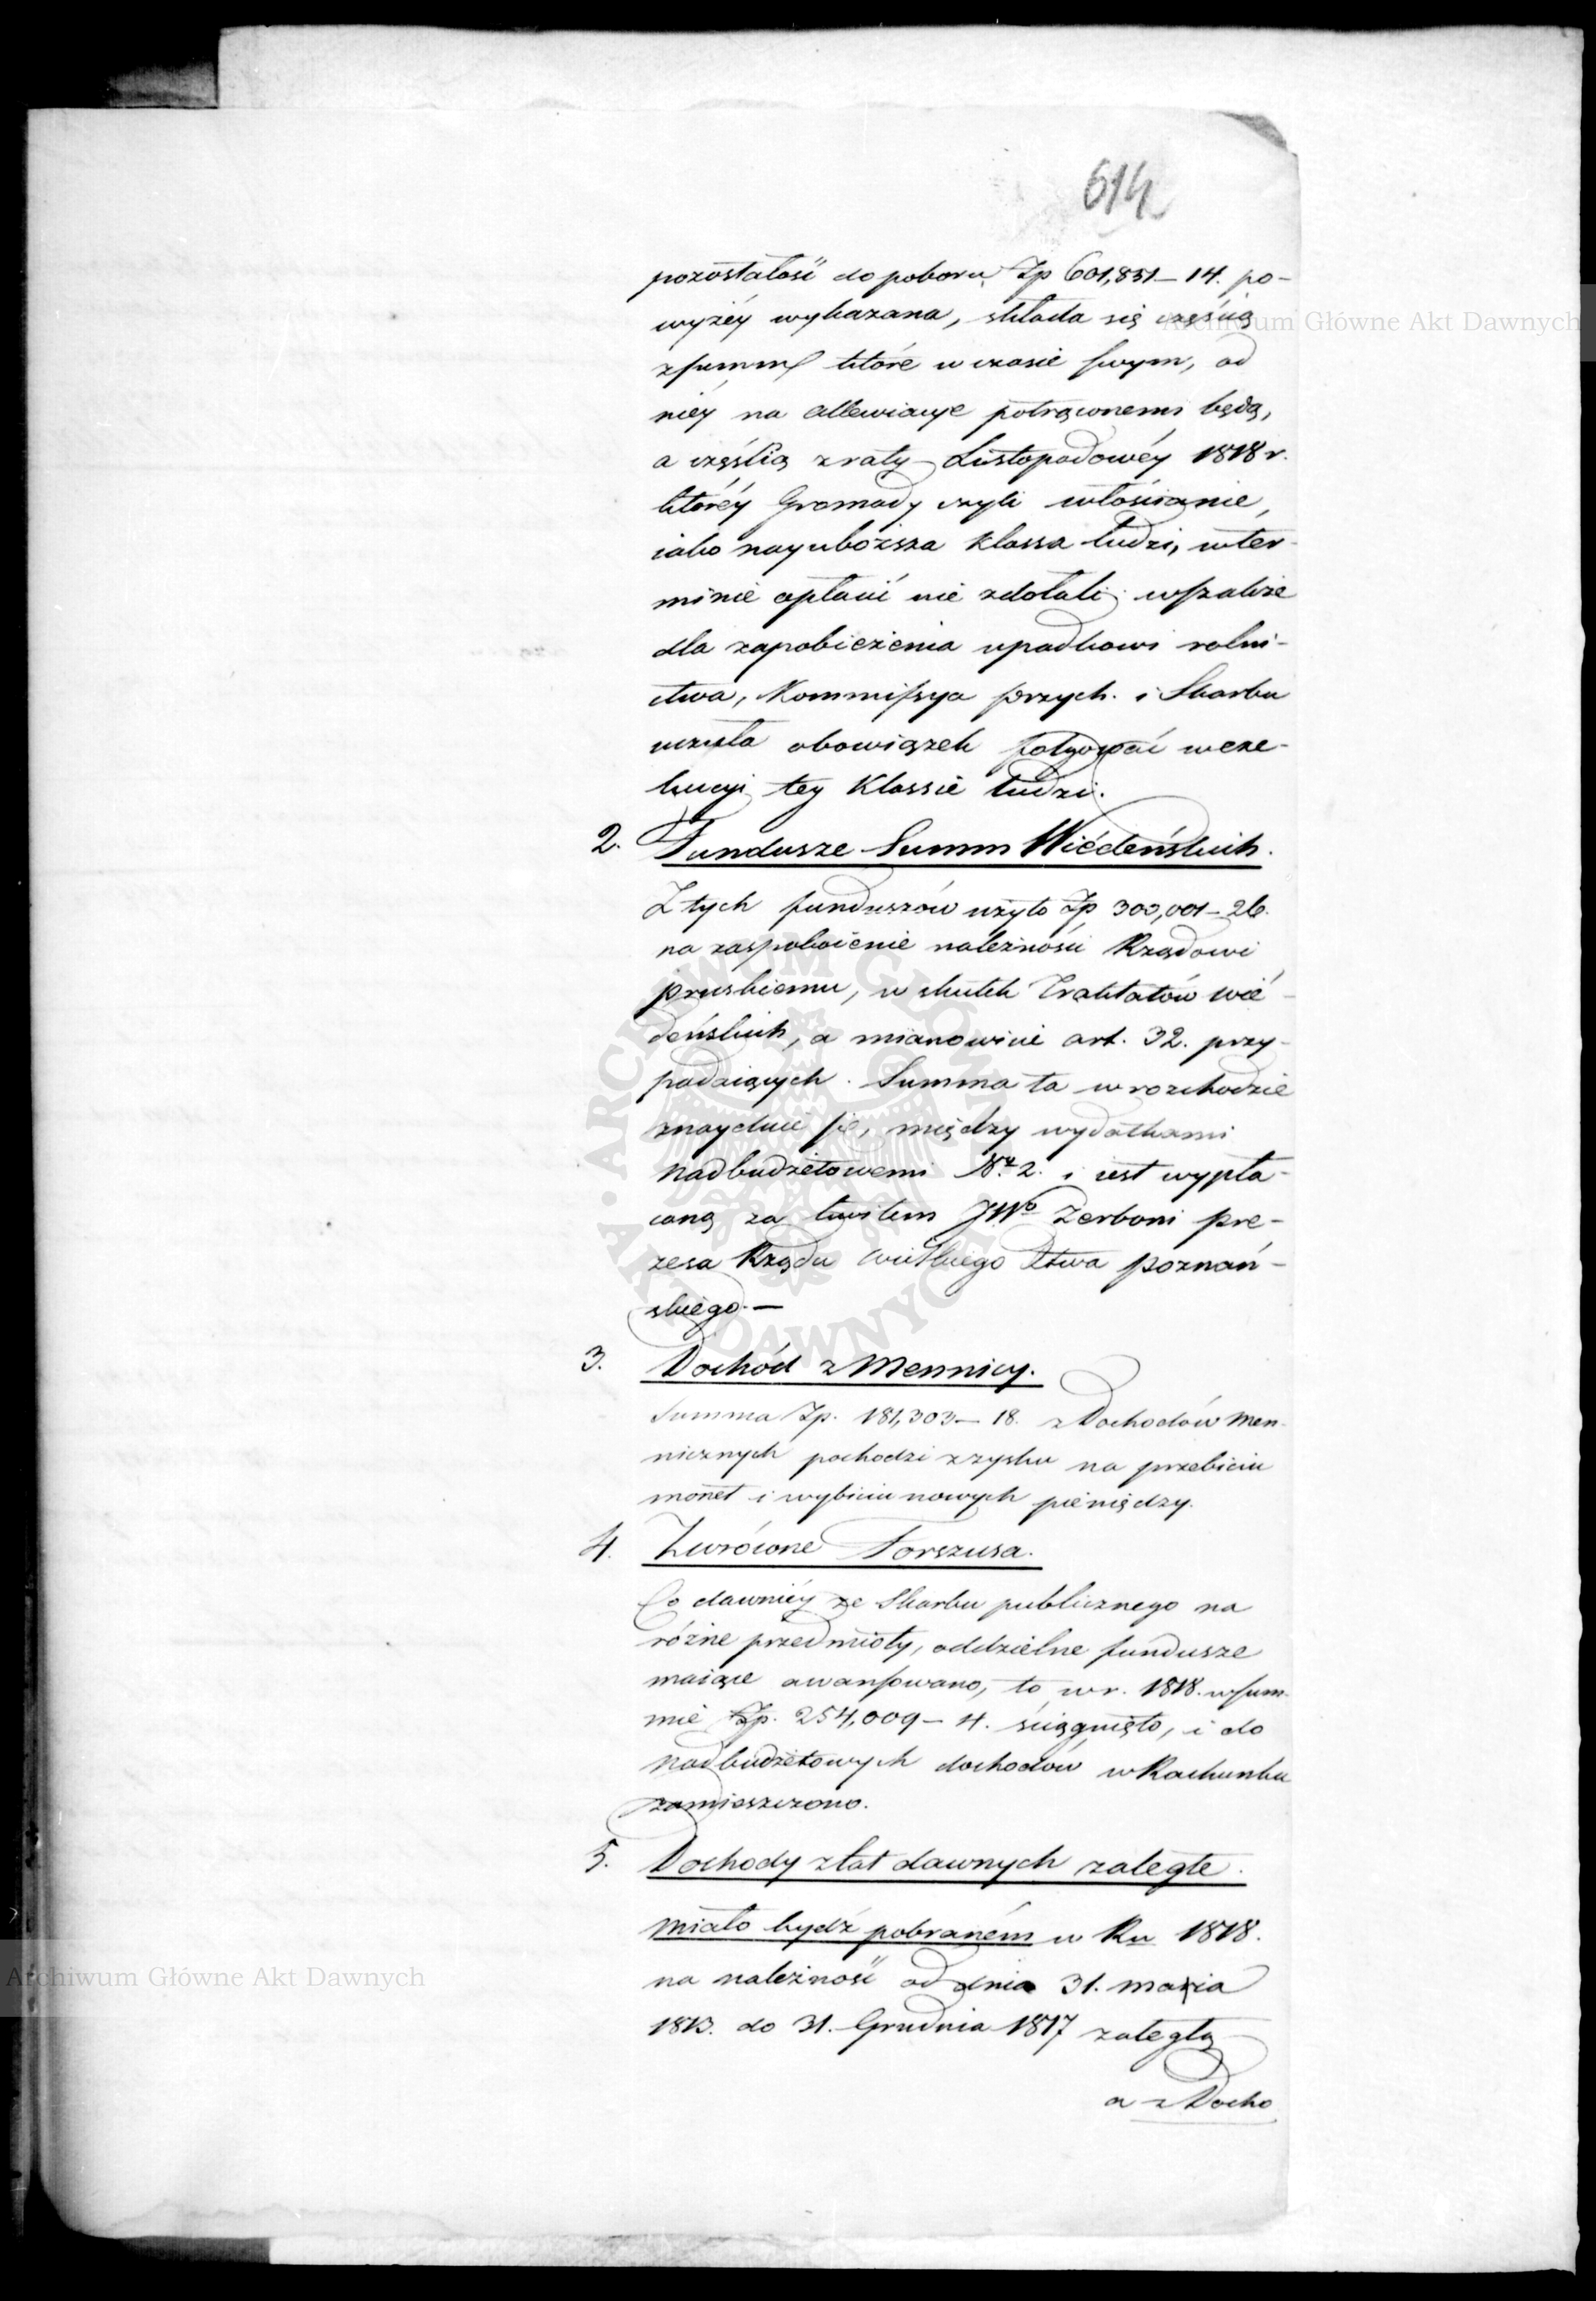 614
pozostałość do poboru Zp 601,851 – 14. po-
wyżéy wykazana, składa się częścią
z summ które w czasie swym, od
niéy na allewiacye potrąconemi będą,
a częścią z raty Listopadowéy 1818 r.
któréy Gromady czyli włościanie,
iako nayuboższa klassa ludzi, w ter-
minie opłacić nie zdołali; wszakże
dla zapobieżenia upadkowi rolni-
ctwa, Kommissya Przych. i Skarbu
uczuła obowiązek folgować w exe-
kucyi tey Klassie ludzi.
2. Fundusze Summ Wiédeńskich.
Z tych funduszów użyto Zp 300,001 – 26.
na zaspokoienie należności Rządowi
Pruskiemu, w skutek Traktatów Wié-
deńskich, a mianowicie art. 32. przy-
padaiących. Summa ta w rozchodzie
znayduie się, między wydatkami
nadbudżetowemi Nr. 2. i iest wypła-
coną za kwitem JWo Zerboni pre-
zesa Rządu Wielkiego Xtwa Poznań-
skiego. –
3. Dochód z Mennicy.
Summa Zp. 181,303 – 18. z Dochodów Men-
nicznych pochodzi z zysku na przebiciu
monet i wybiciu nowych pieniędzy.
4. Zwrócone Forszusa.
Co dawniéy ze Skarbu publicznego na
różne przedmioty, oddzielne fundusze
maiące awansowano, to w r. 1818. w sum-
mie Zp. 254,009 – 4. ściągnięto, i do
nadbudżetowych dochodów w Rachunku
zamieszczono.
5. Dochody z lat dawnych zaległe.
Miało bydź pobraném w Ru 1818.
na należność od dnia 31. maia
1813. do 31. Grudnia 1817 zaległą
a z Docho
Archiwum Główne Akt Dawnych
ARCHIWUM GŁÓWNE AKT DAWNYCH
Archiwum Główne Akt Dawnych